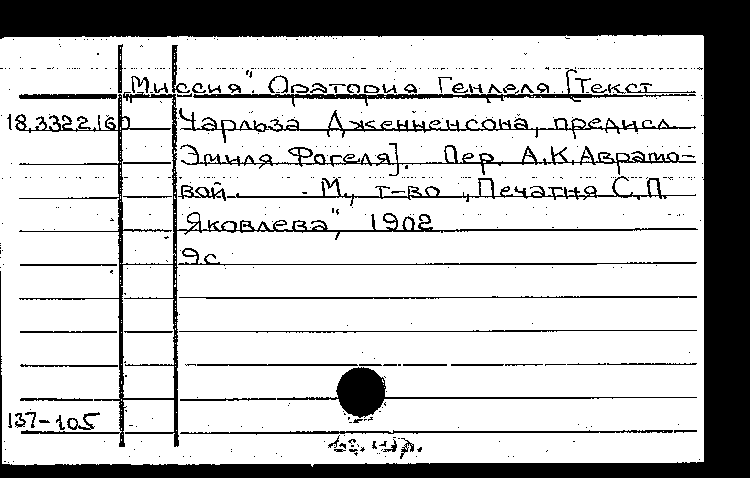 „Миссия“. Оратория Генделя [Текст
18.3322.160 Чарльза Дженненсона, предисл.
Эмиля Фогеля]. Пер. А.К. Аврамо-
вой. - М., т-во „Печатня С.П.
Яковлева“, 1902
9с
137-105